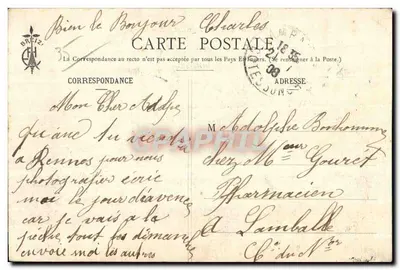 Bien le Bonjour Charles
BREIZ
CARTE POSTALE
La Correspondance au recto n'est pas acceptée par tous les Pays Etrangers. (Se renseigner à la Poste.)
CORRESPONDANCE
ADRESSE
Mon Cher Adolphe
quand tu viendra
à Rennes pour nous
photografier écrie
moi le jour d'avence
car je vais a la
pêche tout les dimanc
envoie moi les autres
M. Adolphe Bonhomme
chez Mr Gouret
Pharmacien
A Lamballe
C. du N.